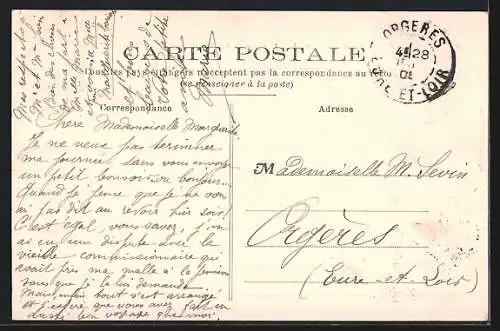 CARTE POSTALE
Tous les pays étrangers n'acceptent pas la correspondance au recto
(se renseigner à la poste)
Correspondance
Adresse
ORGÈRES
4 28
EURE-ET-LOIR
Chère Mademoiselle Marguerite
Je ne veux pas terminer
ma journée sans vous envoyer
un petit bonsoir ou bonjour
Quand je pense que je ne vous
ai pas dit au revoir hier soir!
C'est égal vous savez, j'en
ai eu une dispute avec le
vieille commissionnaire qui
avait pris ma malle à la
sans que je la lui demande
Mais, enfin tout s'est arrangé
et j'espère que vous avez fait un
aussi bon voyage que moi.
Mes respects à
de ma part à
Melle Marie
Mademoiselle M. Sevin
Orgères
(Eure-et-Loir)